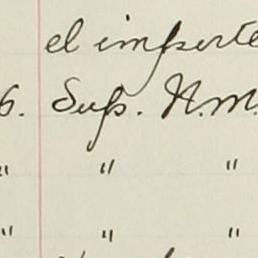 el importe
6. Sup. N.M.
" " "
" " "